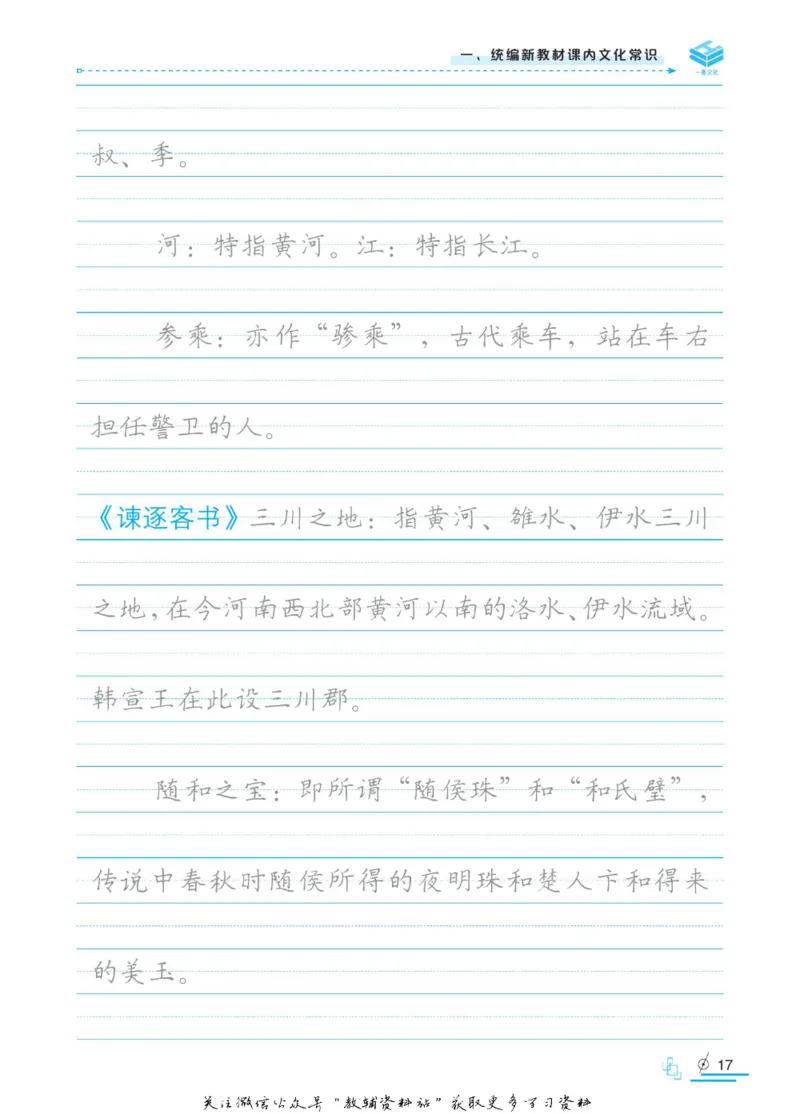 一、统编新教材课内文化常识
一鹿文化
叔、季。
河：特指黄河。江：特指长江。
参乘：亦作“骖乘”，古代乘车，站在车右
担任警卫的人。
《谏逐客书》三川之地：指黄河、雒水、伊水三川
之地，在今河南西北部黄河以南的洛水、伊水流域。
韩宣王在此设三川郡。
随和之宝：即所谓“随侯珠”和“和氏璧”，
传说中春秋时随侯所得的夜明珠和楚人卞和得来
的美玉。
17
关注微信公众号“教辅资料站”获取更多学习资料